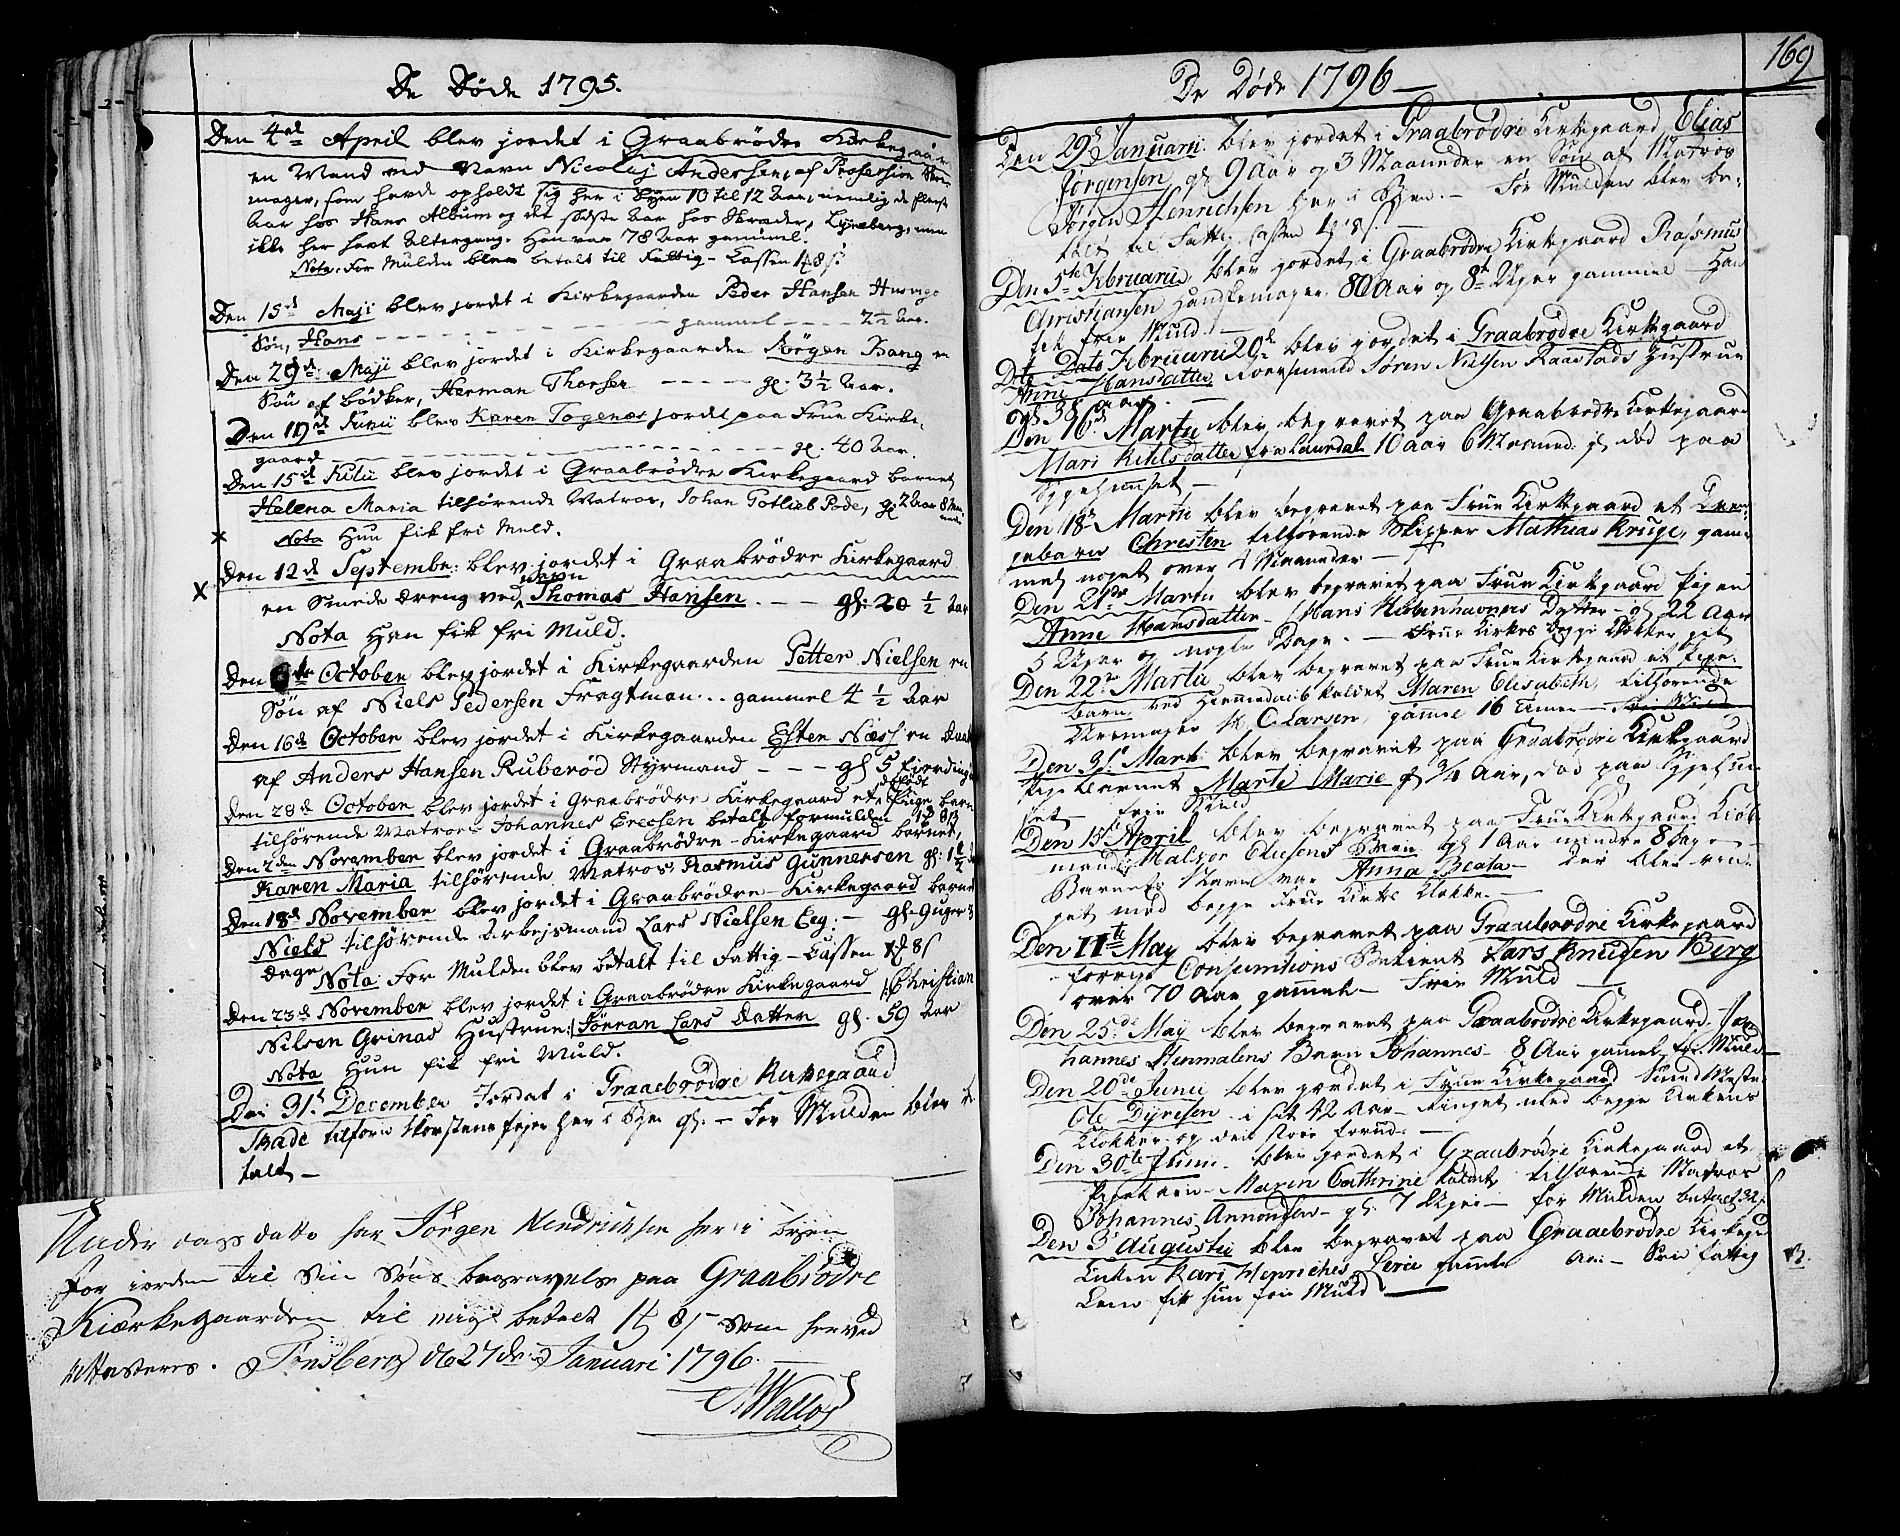 De Døde 1795.
Den 4de April blev jordet i Graabrødre Kirkegaar
en Mand ved Navn Nicolaj Andersen, af Profession
mager, som havde opholdt sig her i Byen 10 til 12 Aar, nemlig de fleeste
Aar hos Hans Album og det sidste Aar hos Skræder, Lyneberg, men
ikke her havt Altergang. Han var 78 Aar gammel.
Nota. For Mulden blev betalt til Fattig-Cassen 8 s.
Den 15d Maji blev jordet i Kirkegaarden Peder Hansen
Søn, Hans - - - gammel - - - 2½ Aar.
Den 29d. Maji blev jordet i Kirkegaarden Jørgen Bang en
Søn af bødker, Herman Thorsen - - - gl. 3½ Aar.
Den 19d Junii blev Karen Togenæs jordet paa Frue Kirke-
gaard - - - gl. 40 Aar.
Den 15d Julii blev jordet i Graabrødre Kirkegaard barnet
Helena Maria tilhørende Matros, Johan Gotlieb Pode, gl 2 Aar 8
Nota Hun fik fri Muld.
Den 12d September: blev jordet i Graabrødre Kirkegaard
en Smede Dreng ved Navn Thomas Hansen - - - gl: 20 ½ Aar
Nota Han fik fri Muld.
Den October blev jordet i Kirkegaarden Petter Nielsen en
Søn af Niels Pedersen Fragtman .. gammel 4 ½ Aar
Den 16d October blev jordet i Kirkegaarden Esten Næss en
af Anders Hansen Ruberød Styrmand - - - gl 5 fierdinga
Den 28d October blev jordet i Graabrødre Kirkegaard et Pige barn
tilhørende Matros Johannes Erecsen betalt for mulden 8 s
Den 2den November blev jordet i Graabrødre-Kirkegaard barnet,
Karen Maria tilhørende Matros Rasmus Gunnersen gl: 1 ½
Den 18d November blev jordet i Graabrødre-Kirkegaard barnet
Niels tilhørende Arbejsmand Lars Nielsen Eeg: - gl. 9 uger 3
Dage Nota For Mulden blev betalt til Fattig-Cassen 8 s
Den 23d November blev jordet i Graabrødre Kirkegaard Christian
Nilsen Grinas Hustrue: Jørran Lars Datter gl. 59 Aar
Nota Hun fik fri Muld.
Den 31t December Jordat i Graaebrødre Kirkegaard
tilforn Skorsteensfejer her i Byen gl. - For Mulden blev be
talt -
Under dags datto har Jørgen Hendrichsen her i byen
for iorden til Sin Søns begravelse paa Graabrødre
Kiærkegaarden til mig betalt 8 s som herved
attesteres. Tønsberg de 27de Januari 1796.
Wallos
169
De Døde 1796
Den 29d Januarii blev jordet i Graabrødre Kirkegaard Elias
Jørgensen gl 9 Aar og 3 Maaneder en Søn af Matros
Jørgen Henrichsen her i Byen. - For Mulden blev be-
talt til Fattig Cassen 8 s.
Den 5te Februarii blev jordet i Graabrødre Kirkegaard Rasmus
Christiansen Handskemager 80 Aar og 8t Uger gammel - Han
fik frie Muld. -
Februarii 20de blev jordet i Graabrødre Kirkegaard
Anne Hansdatter, Søren Nielsen Raastads Hustrue
Den 16d. Martii blev begravet paa Graabrødre Kirkegaard
Mari Kihlsdatter fra Laurdal 10 aar 6 Maaned. gl død paa
Sygehuuset -
Den 18d Martii blev begravet paa Frue Kirkegaard et Dren-
gebarn Christen tilhørende Skipper Mathias Kruge, gam-
mel noget over 4 Maaneder -
Den 21de Martii blev begravet paa Frue Kirkegaard Pigen
Anne Hansdatter - Hans Kiøbenhavners Datter - gl 22 Aar
5 Uger og nogle Dage. - Frue Kirkes begge Klokker
Den 22de Martii blev begravet paa Frue Kirkegaard et Pige-
barn, ved Hiemmedaab kaldet Maren Elisabeth, tilhørende
Uhrmager Hr. C. Larsen, gamle 16 - frie Muld
Den 31. Marti blev begravet paa Graabrødre Kirkegaard
Pigebarnet Marte Marie gl ¾ Aar, død paa Sygehuu-
set - frie Muld
Den 15d April blev begravet paa Frue Kirkegaard Kiøb-
mand Barn gl 1 Aar mindre 8 Dage -
Barnets Navn var Anna Beata - der blev rin-
get med begge Frue Kirkes Klokker. -
Den 11te May blev begravet paa Graabrødre Kirkegaard
forrige Consumtions Betient Lars Knudsen Berg
over 70 Aar gammel - Frie Muld
Den 25de Maji blev begravet paa Graabrødre Kirkegaard - Jo-
hannes Stenmalens Barn Johannes - 8 Aar gammel, frie Muld
Den 20de Junii blev jordet i Frue Kirkegaard
Ole Dyresen i sit 42 Aar - Ringet med begge Kirkens
Klokker og den store forud. -
Den 30te Junii - blev jordet i Graabrødre Kirkegaard et
Pigebarn - Maren Cathrine kaldet tilhørende Matros
Johannes - gl. 7 Uger - for Mulden betalt 32 s
Den 3d Augustii blev begravet paa Graaebrødre Kirkegd
Enken Kari Henriches gamle Aar - Som fattig
Lem fik hun frie Muld